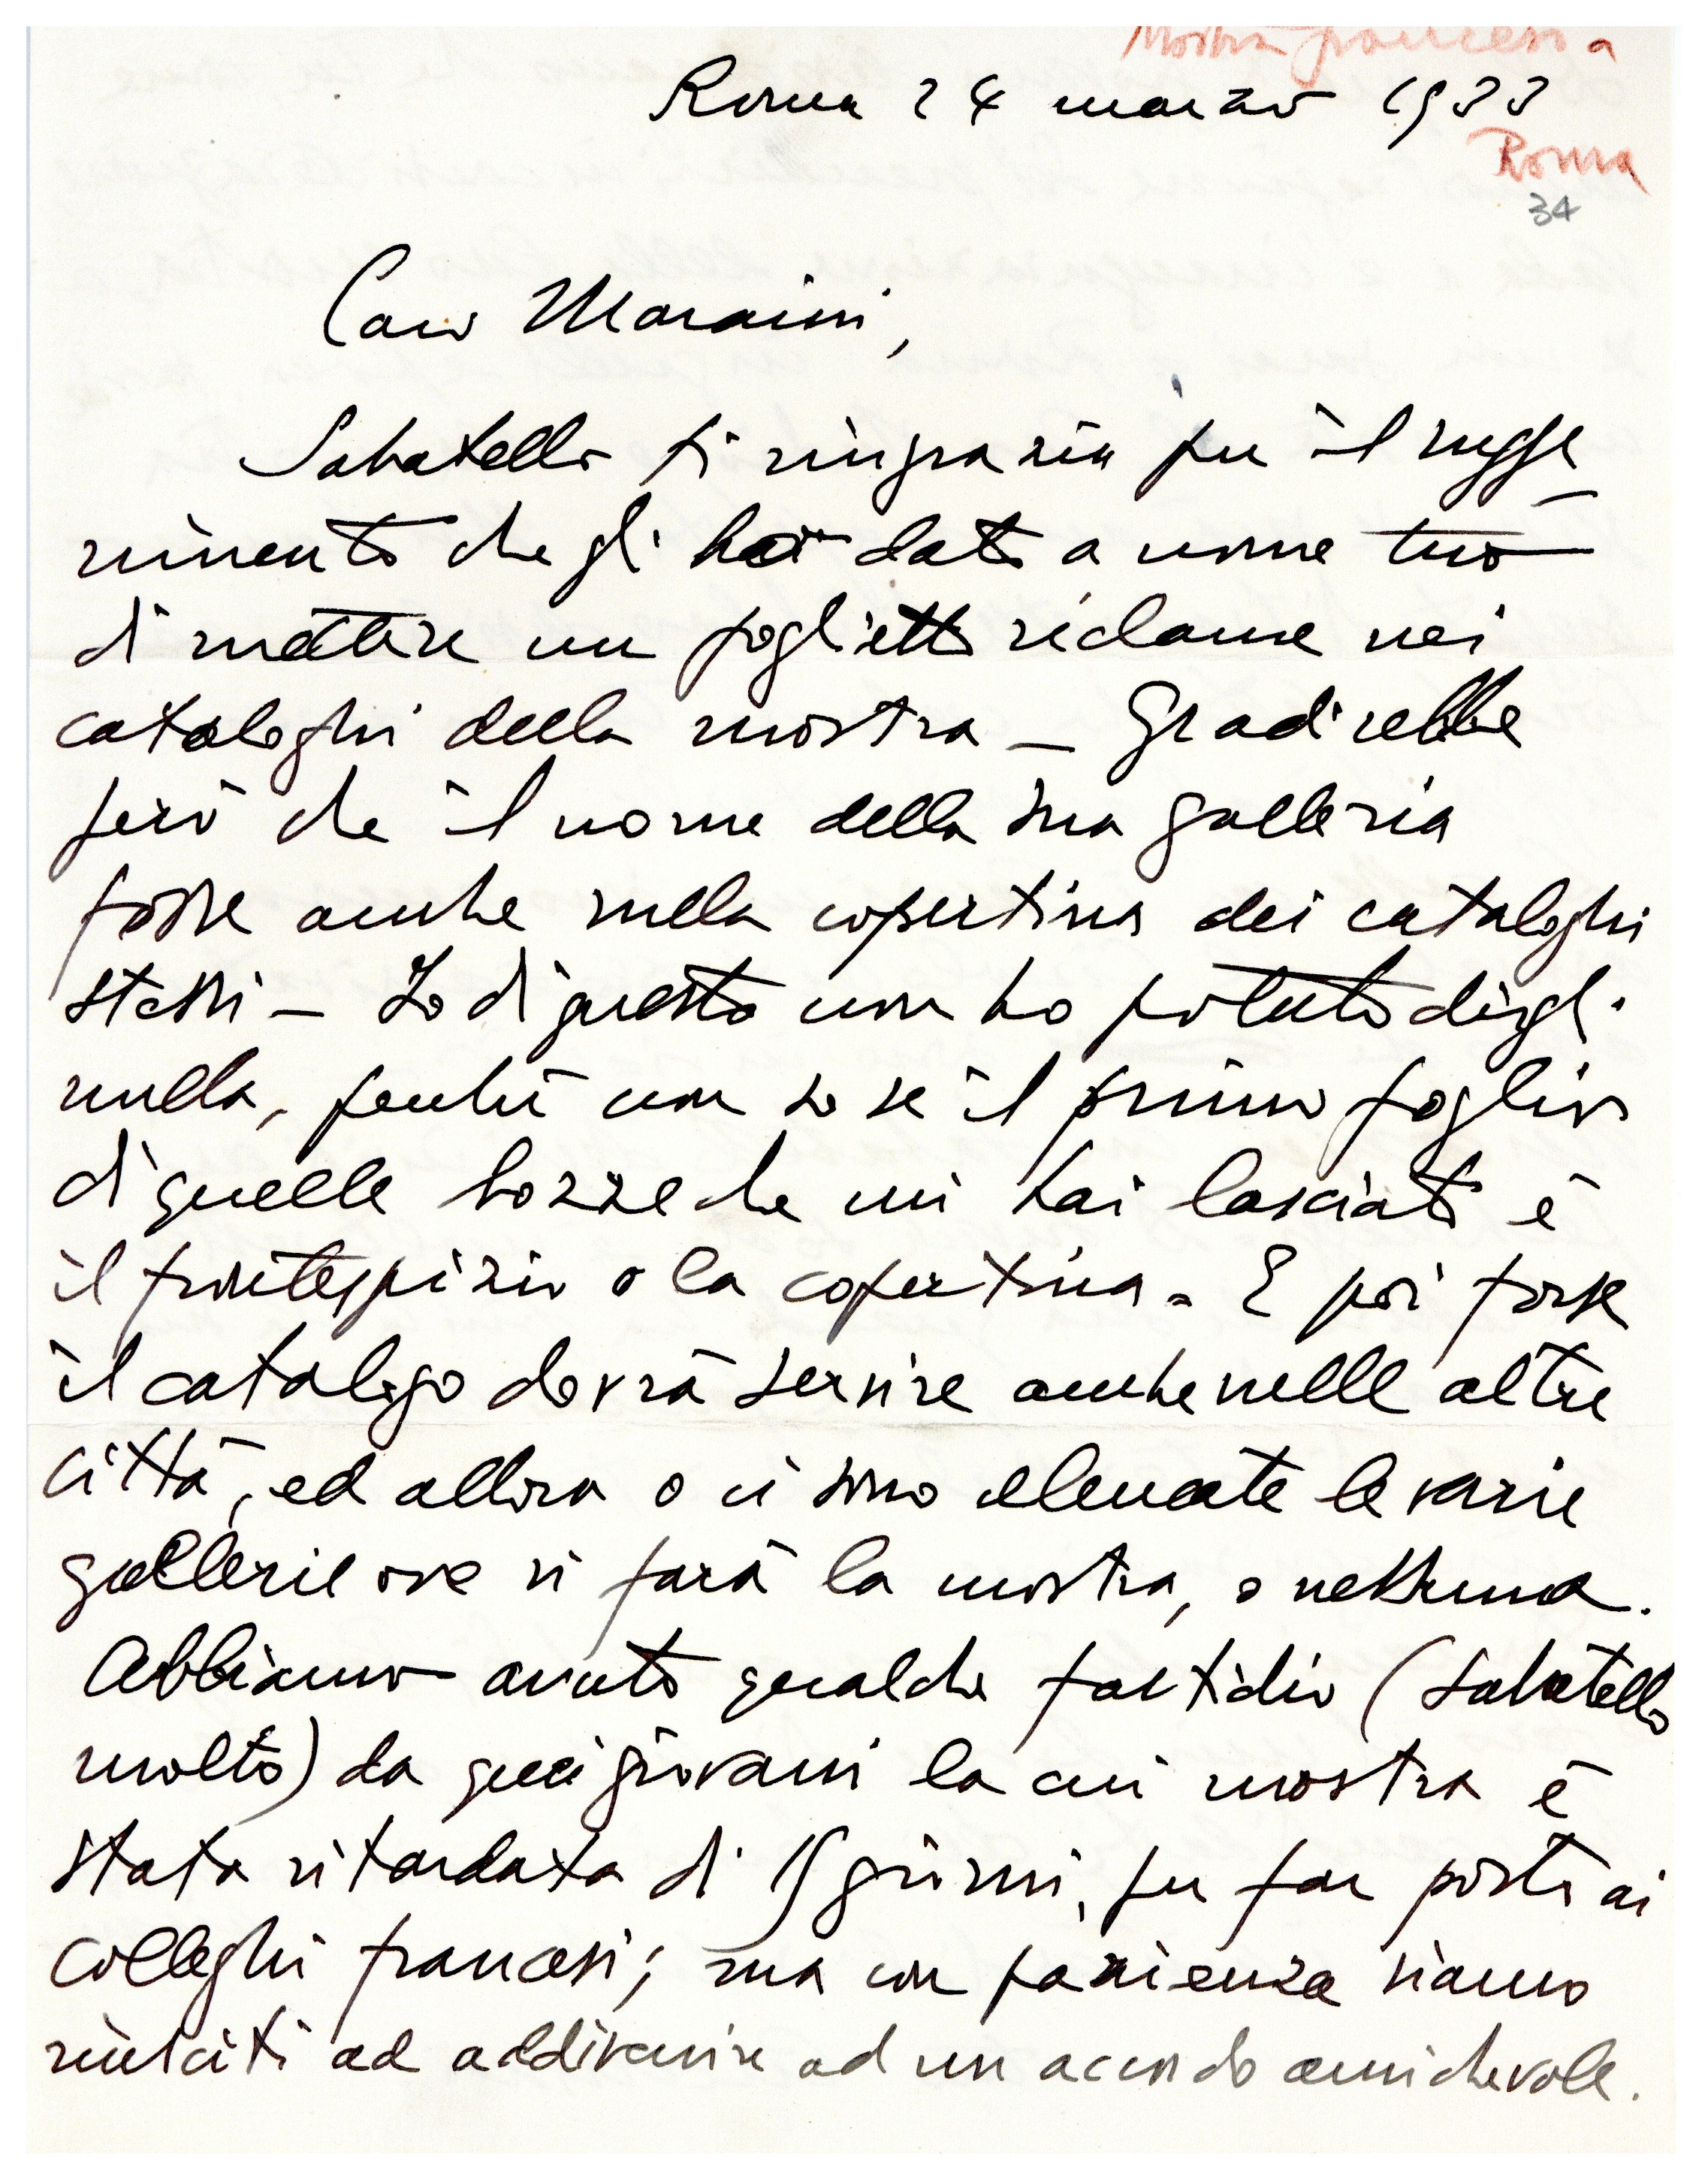 Mostra francese a
Roma 24 marzo 1933
Roma
34
Caro Maraini,
Sabatello ti ringrazia per il sugge
rimento che gli hai dato a nome tuo
di mettere un foglietto réclame nei
cataloghi della mostra — Gradirebbe
però che il nome della sua galleria
fosse anche sulla copertina dei cataloghi
stessi — Io di questo non ho potuto dirgli
nulla, perchè non so se il primo foglio
di quelle bozze che mi hai lasciato è
il frontespizio o la copertina. E poi forse
il catalogo dovrà servire anche nelle altre
città, ed allora o ci sono elencate le varie
gallerie ove si farà la mostra, o nessuna.
Abbiamo avuto qualche fastidio (Sabatello
molto) da quei giovani la cui mostra è
stata ritardata di 15 giorni, per far posto ai
colleghi francesi; ma con pazienza siamo
riusciti ad addivenire ad un accordo amichevole.